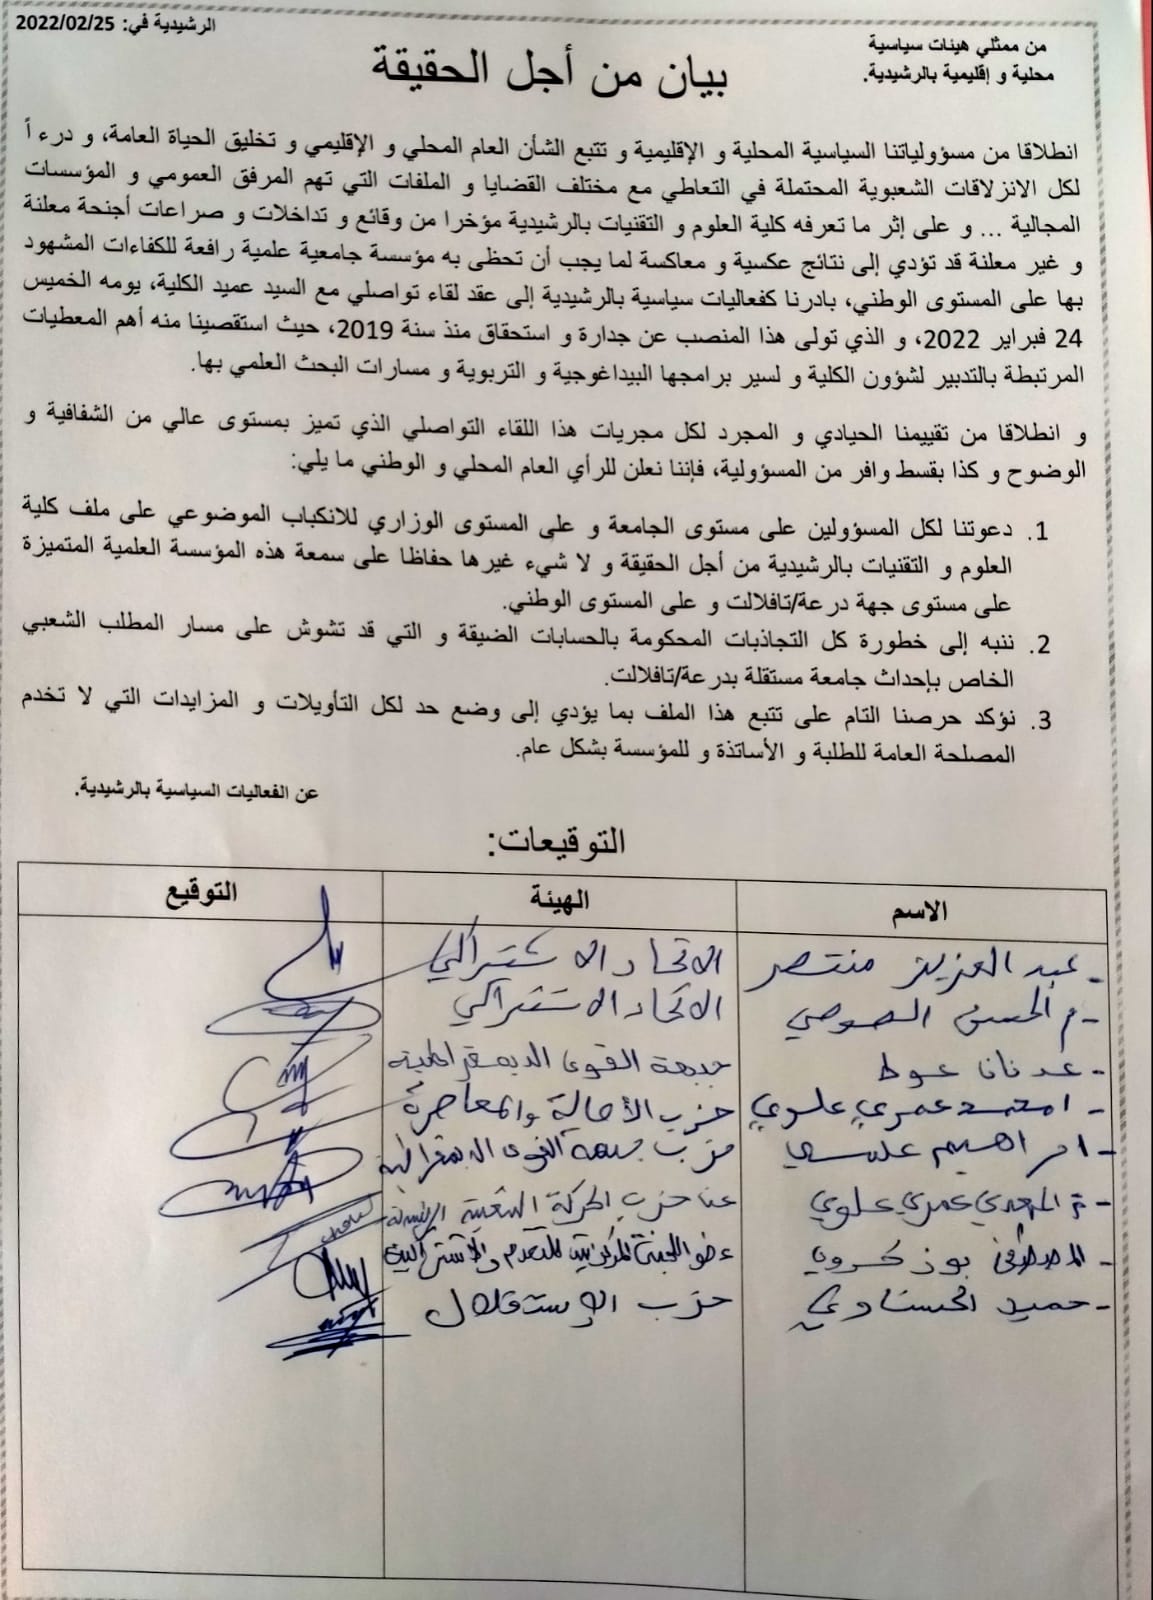 من ممثلي هيئات سياسية
محلية و إقليمية بالرشيدية.
الرشيدية في: 2022/02/25
بيان من أجل الحقيقة
انطلاقا من مسؤولياتنا السياسية المحلية و الإقليمية و تتبع الشأن العام المحلي و الإقليمي و تخليق الحياة العامة، و درء أ
لكل الانزلاقات الشعبوية المحتملة في التعاطي مع مختلف القضايا و الملفات التي تهم المرفق العمومي و المؤسسات
المجالية ... و على إثر ما تعرفه كلية العلوم و التقنيات بالرشيدية مؤخرا من وقائع و تداخلات و صراعات أجنحة معلنة
و غير معلنة قد تؤدي إلى نتائج عكسية و معاكسة لما يجب أن تحظى به مؤسسة جامعية علمية رافعة للكفاءات المشهود
بها على المستوى الوطني، بادرنا كفعاليات سياسية بالرشيدية إلى عقد لقاء تواصلي مع السيد عميد الكلية، يومه الخميس
24 فبراير 2022، و الذي تولى هذا المنصب عن جدارة و استحقاق منذ سنة 2019، حيث استقصينا منه أهم المعطيات
المرتبطة بالتدبير لشؤون الكلية و لسير برامجها البيداغوجية و التربوية و مسارات البحث العلمي بها.
و انطلاقا من تقييمنا الحيادي و المجرد لكل مجريات هذا اللقاء التواصلي الذي تميز بمستوى عالي من الشفافية و
الوضوح و كذا بقسط وافر من المسؤولية، فإننا نعلن للرأي العام المحلي و الوطني ما يلي:
1. دعوتنا لكل المسؤولين على مستوى الجامعة و على المستوى الوزاري للانكباب الموضوعي على ملف كلية
العلوم و التقنيات بالرشيدية من أجل الحقيقة و لا شيء غيرها حفاظا على سمعة هذه المؤسسة العلمية المتميزة
على مستوى جهة درعة/تافلالت و على المستوى الوطني.
2. ننبه إلى خطورة كل التجاذبات المحكومة بالحسابات الضيقة و التي قد تشوش على مسار المطلب الشعبي
الخاص بإحداث جامعة مستقلة بدرعة/تافلالت.
3. نؤكد حرصنا التام على تتبع هذا الملف بما يؤدي إلى وضع حد لكل التأويلات و المزايدات التي لا تخدم
المصلحة العامة للطلبة و الأساتذة و للمؤسسة بشكل عام.
عن الفعاليات السياسية بالرشيدية.
التوقيعات:
الاسم الهيئة التوقيع
- عبد العزيز منتصر الاتحاد الاشتراكي
- م الحسن الاتحاد الاشتراكي
- عدنان عوط جبهة القوى الديمقراطية
- امحمد عمري علوي حزب الأصالة والمعاصرة
- حزب جبهة القوى الديمقراطية
- م المهدي عمري علوي عن حزب الحركة الشعبية
- المصطفى بوزكروي عضو اللجنة المركزية للتقدم والاشتراكية
- حميد الحسناوي حزب الإستقلال